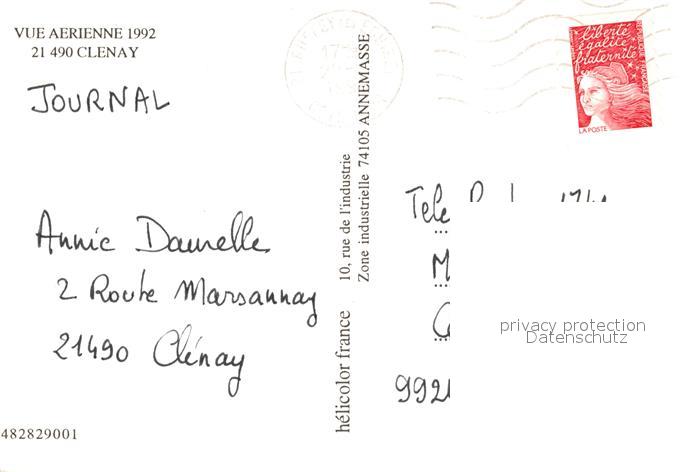 VUE AERIENNE 1992
21 490 CLENAY
JOURNAL
Annie Daurelle
2 Route Marsannay
21490 Clénay
482829001
hélicolor france
10, rue de l'industrie
Zone industrielle 74105 ANNEMASSE
liberté
égalité
fraternité
REPUBLIQUE FRANÇAISE
LA POSTE
Tele
M
992
privacy protection
Datenschutz